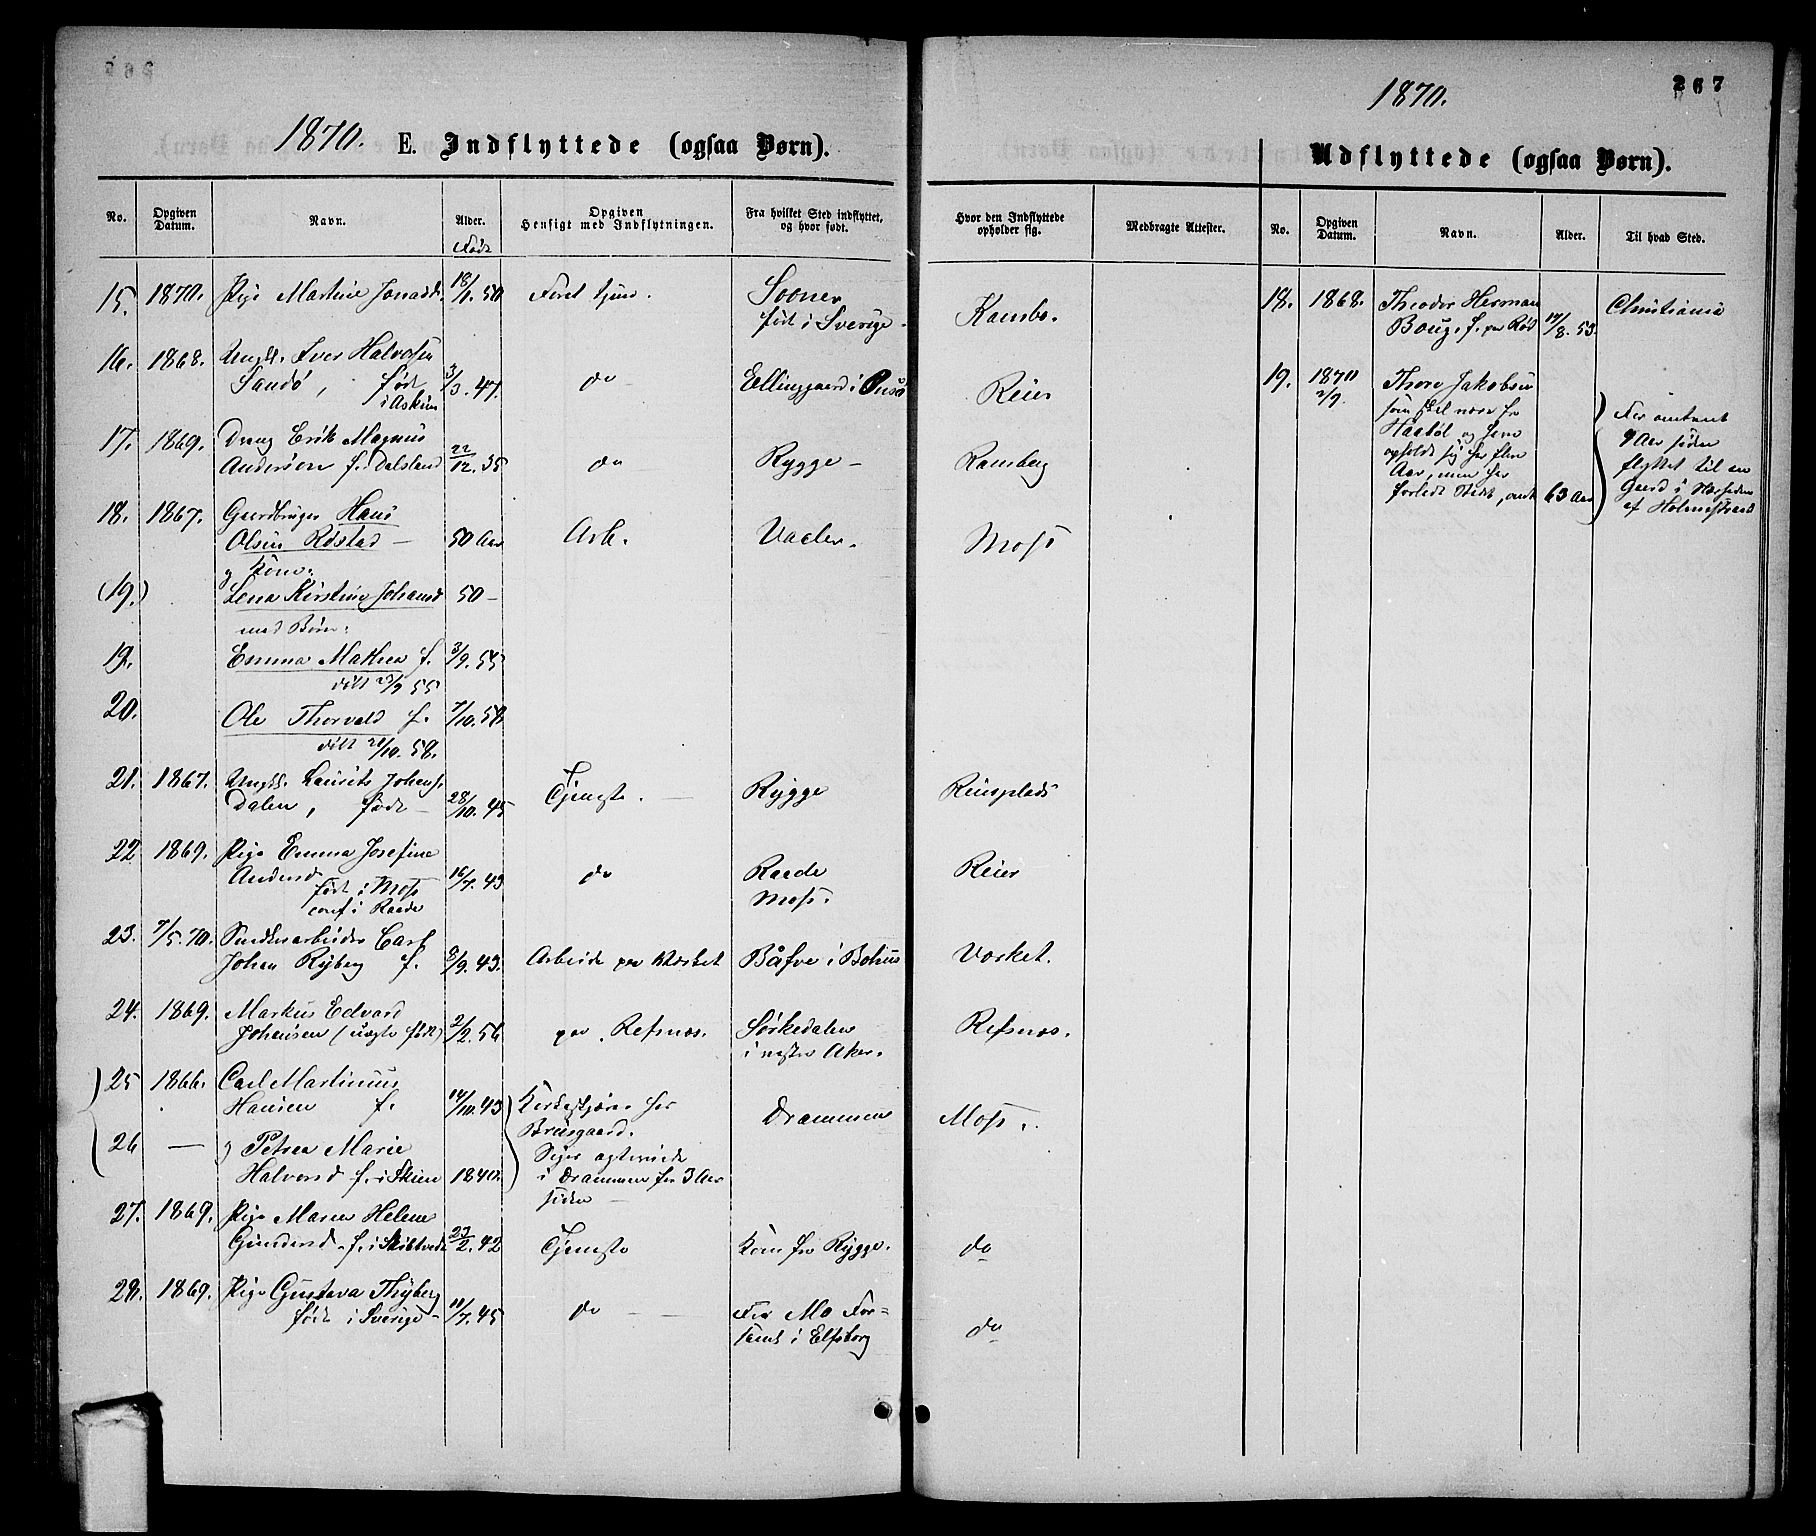 1870. E. Indflyttede (ogsaa Børn).
No. Opgiven Datum. Navn. Alder. Opgiven Hensigt med Indflytningen. Fra hvilket Sted indflyttet, og hvor født.
Født
15. 1870. Pige Martine 18/1. 50 Soones
født i Sverige
16. 1868. Ungk. Iver Halvorsen
Sandø, født 3/3. 47. do Ellinggaard i Onsø
i Askim
17. 1869. Dreng Erik Magnus
Andersen f. i Dalsland 22/12. 35 do Rygge
18. 1867. Gaardbruger Hans
Olsen Røstad 50 Aar Arb. Vaaler.
og Kone:
(19.) Lena Kirstine Johansd 50
med Børn:
19. Emma Mathea f. 3/9. 55
døbt 23/9 55
20. Ole Thorvald f. 7/10. 58
døbt /10. 58.
21. 1867. Ungk. Laurits Johans.
Dalen, født 28/10. 45 Tjeneste. Rygge
22 1869. Pige Emma Josefine
Andersd 16/7. 43 do Raade
født i Moss Moss.
conf i Raade
23. 7/5. 70. Carl
Johan Ryberg f. 9/9. 43. Arbeide paa Værket Båfve i Bohus
24. 1869. Markus Edvard
Johansen (uægte født) 2/2. 56 paa Refsnæs. Sørkedalen
i vestre Aker.
25 1866. Carl Martinius
Hansen f. 14/10. 43 Drammen
26 — og Petrea Marie
Halvorsd f. i Skien 1840. i Drammen for 3 Aar
siden
27. 1869. Pige Maren Helene
Gundersd. f. i Skibtvedt 23/2. 42 Tjeneste Kom fra Rygge.
28. 1869. Pige Gustava Thyberg
født i Sverige 10/7. 45 do Fra Mo For=
saml i Elfsborg
1870. 267
Udflyttede (ogsaa Børn).
Hvor den Indflyttede opholder sig. Medbragte Attester. No. Opgiven Datum. Navn. Alder. Til hvad Sted.
Kambo. 18. 1868. Theodor Herman Christiania
Boug. f. paa Rød 17/8. 53
Reier 19. 1870 Thore Jakobsen
2/9. som skal være fra
Haabøl og have
opholdt sig her flere
Aar, men har
forladt Stedet, omt 63 Aar
For omtrent
9 Aar siden
flyttet til en
Gaard i Nærheden
af Holmestrand
Kamberg
Moss
Reierplads
Reier
Værket.
Refsnæs.
Moss.
do
do